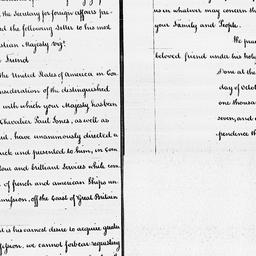 the Secretary for foreign affairs
the following letter to his most
Christian Majesty viz.
Friend
the United States of America in Con
consideration of the distinguished
with which your Majesty has been
Chevalier Paul Jones, as well as
have unanimously directed a
struck and presented to him, in Com
and brilliant Services while com
of french and american Ships un
commission, off the Coast of Great Britain
is his earnest desire to acquire greater
profession, we cannot forbear requesting
us in whatever may concern the
your Family and People.
We pray
beloved friend under his holy
Done at the
day of Octo
one thousan
seven, and
pendence th